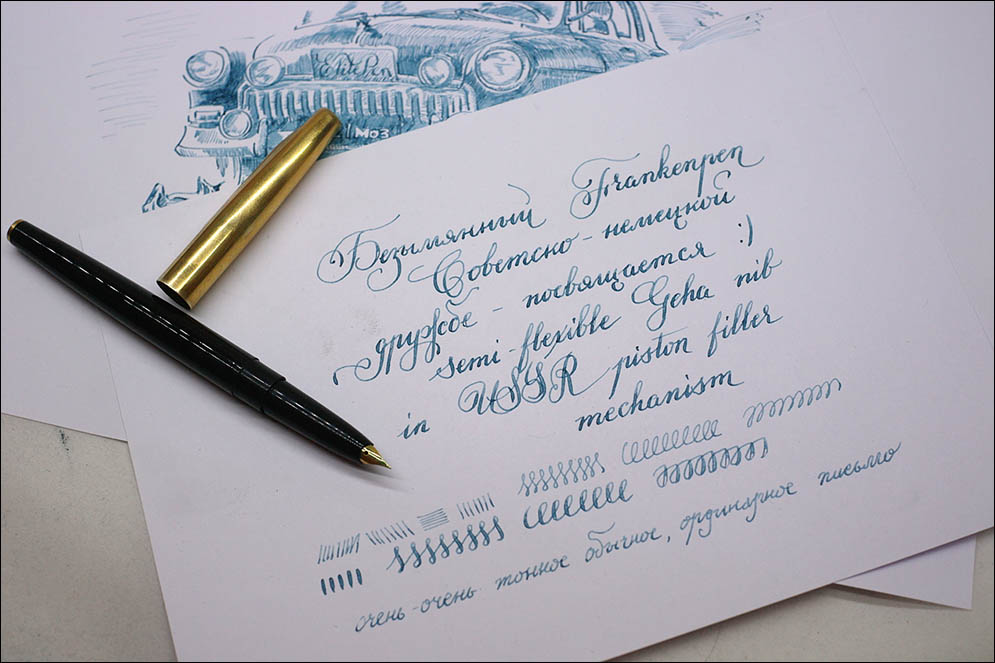 ElitePen
МОЗ
Безымянный Frankenpen
Советско-немецкой
дружбе - посвящается :)
semi-flexible Geha nib
in USSR piston filler
mechanism
очень-очень тонкое обычное, ординарное письмо